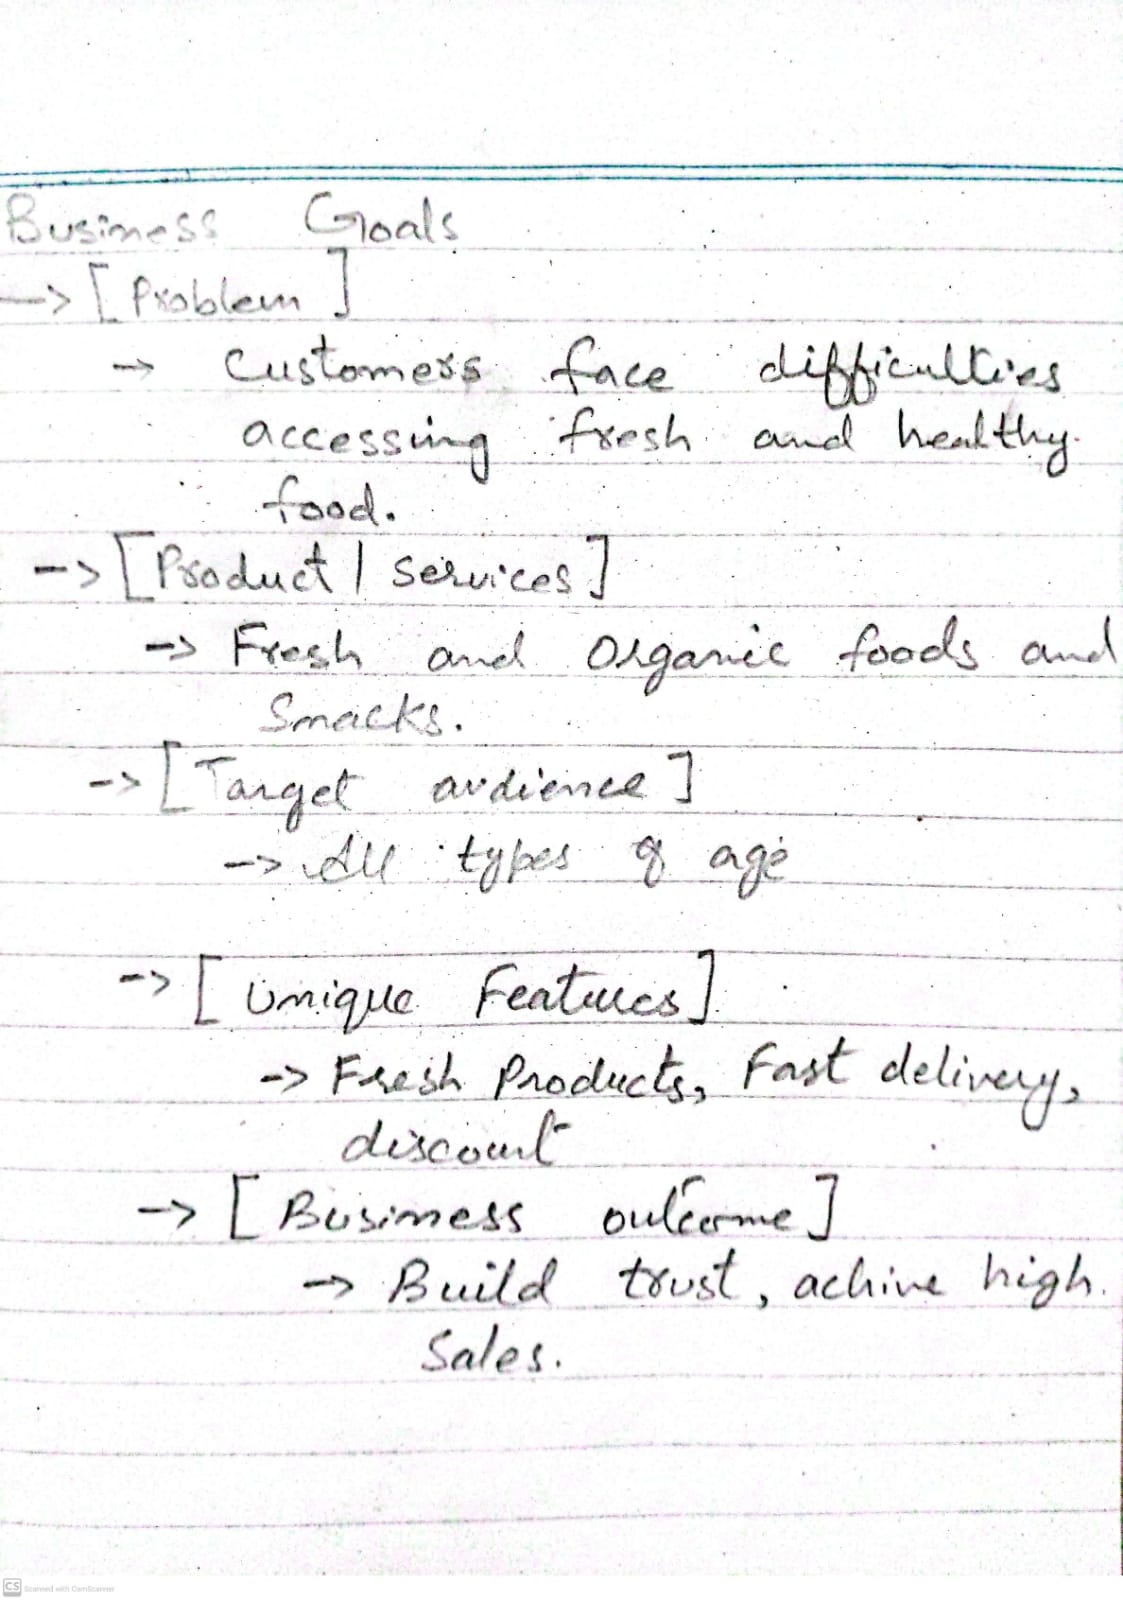 Business Goals
-> [Problem]
-> Customers face difficulties
accessing fresh and healthy
food.
-> [Product | services]
-> Fresh and Organic foods and
Snacks.
-> [Target audience]
-> All types of age
-> [Unique Features]
-> Fresh Products, Fast delivery,
discount
-> [Business outcome]
-> Build trust, achive high
Sales.
CS Scanned with CamScanner